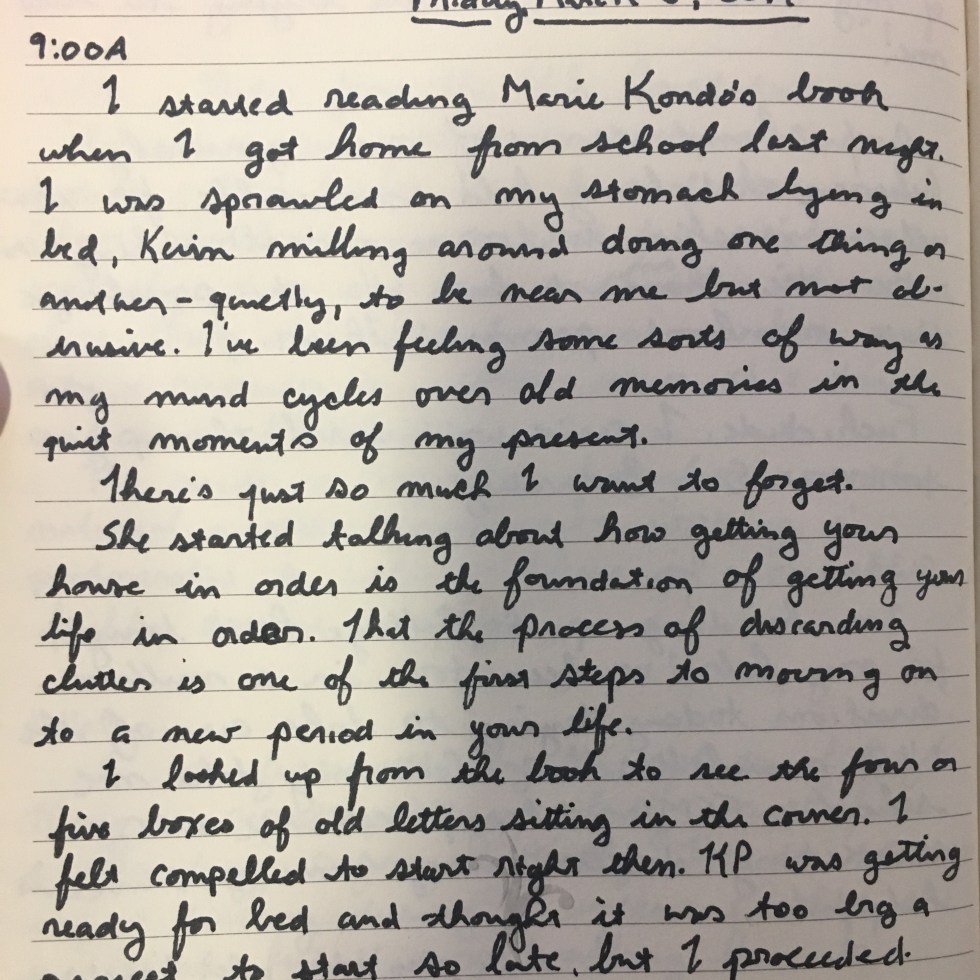 9:00A
I started reading Marie Kondo's book
when I got home from school last night.
I was sprawled on my stomach lying in
bed, Kevin milling around doing one thing or
another - quietly, to be near me but not ob-
trusive. I've been feeling some sorts of way as
my mind cycles over old memories in the
quiet moments of my present.
There's just so much I want to forget.
She started talking about how getting your
house in order is the foundation of getting your
life in order. That the process of discarding
clutter is one of the first steps to moving on
to a new period in your life.
I looked up from the book to see the four or
five boxes of old letters sitting in the corner. I
felt compelled to start right then. KP was getting
ready for bed and thought it was too big a
project to start so late, but I proceeded.